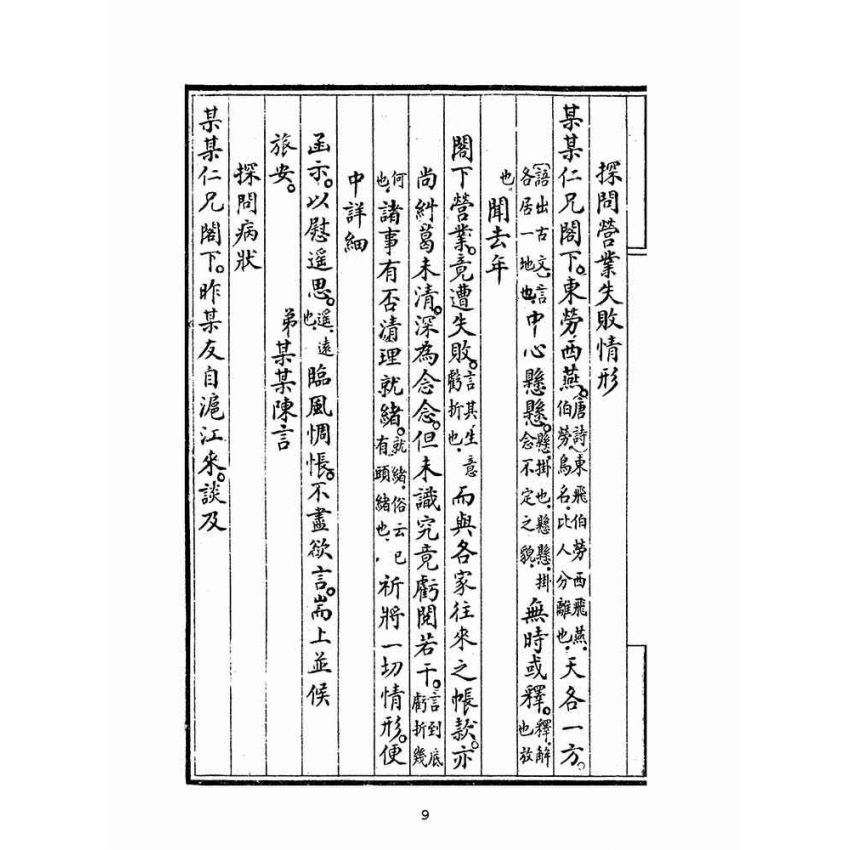 探問營業失敗情形
某某仁兄閣下。東勞西燕。(唐詩)東飛伯勞西飛燕。伯勞鳥名。比人分離也。天各一方。
(語出古文。)言各居一地也。中心懸懸。懸。掛也。懸懸。掛念不定之貌。無時或釋。釋。解也放
也。聞去年
閣下營業。竟遭失敗。言其生意虧折也。而與各家往來之帳款。亦
尚糾葛未清。深為念念。但未識究竟虧閱若干。言到底虧折幾
何也。諸事有否清理就緒。就緒。俗云已有頭緒也。祈將一切情形。便
中詳細
函示。以慰遥思。遥。遠也。臨風惆悵。不盡欲言。耑上並候
旅安。 弟某某陳言
探問病狀
某某仁兄閣下。昨某友自滬江來。談及
9